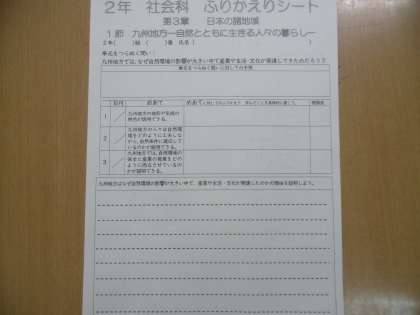 2年 社会科 ふりかえりシート
第3章 日本の諸地域
1節 九州地方ー自然とともに生きる人々の暮らしー
2年( )組( )番 氏名( )
単元をつらぬく問い
九州地方では、なぜ自然環境の影響が大きい中で産業や生活・文化が発展してきたのだろう？
単元をつらぬく問いに対しての予想
日付 めあて
1 / 九州地方の地形や気候の特色が説明できる。
2 / 九州地方の人々は自然環境をどのように工夫しながら、自然条件に適応しているのかが説明できる。
3 / 九州地方では、自然環境の保全と産業の発展をどのように両立させているのかが説明できる。
九州地方はなぜ自然環境の影響が大きい中で、産業や生活・文化が発展したのかの理由を説明しよう。